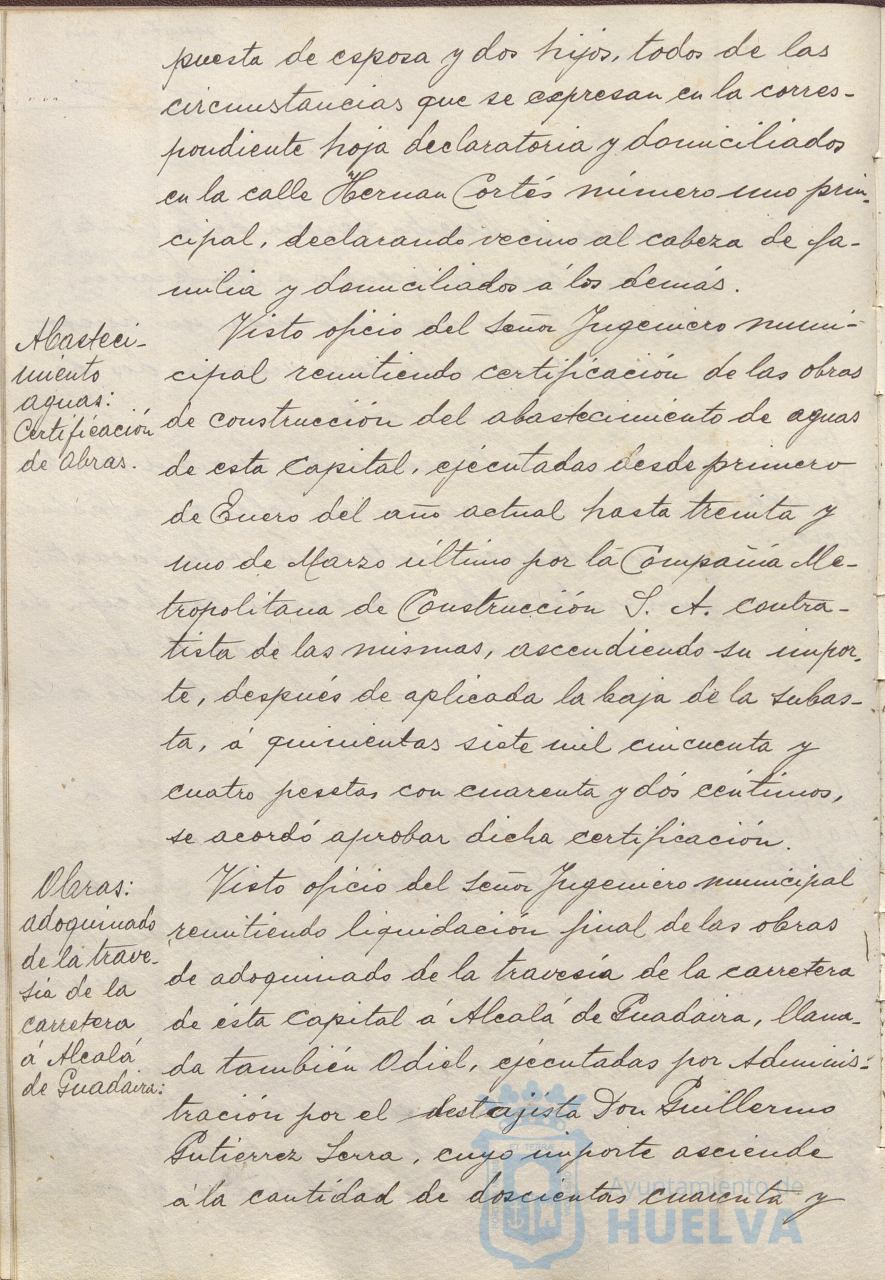 puesta de esposa y dos hijos, todos de las
circunstancias que se expresan en la corres-
pondiente hoja declaratoria y domiciliados
en la calle Hernan Cortés número uno prin-
cipal, declarando vecino al cabeza de fa-
milia y domiciliados á los demás.
Abasteci-
miento
aguas:
Certificación
de obras.
Visto oficio del Señor Ingeniero muni-
cipal remitiendo certificación de las obras
de construcción del abastecimiento de aguas
de esta Capital, ejécutadas desde primero
de Enero del año actual hasta treinta y
uno de Marzo último por la Compañia Me-
tropolitana de Construcción S. A. contra-
tista de las mismas, ascendiendo su impor-
te, después de aplicada la baja de la subas-
ta, á quinientas siete mil cincuenta y
cuatro pesetas con cuarenta y dós céntimos,
se acordó aprobar dicha certificación.
Obras:
adoquinado
de la trave-
sía de la
carretera
á Alcalá
de Guadaira:
Visto oficio del Señor Ingeniero municipal
remitiendo liquidación final de las obras
de adoquinado de la travesía de la carretera
de ésta Capital á Alcalá de Guadaira, llama-
da también Odiel, ejécutadas por Adminis-
tración por el destajista Don Guillermo
Gutierrez Serra, cuyo importe asciende
á la cantidad de doscientas cuarenta y
Ayuntamiento de
HUELVA